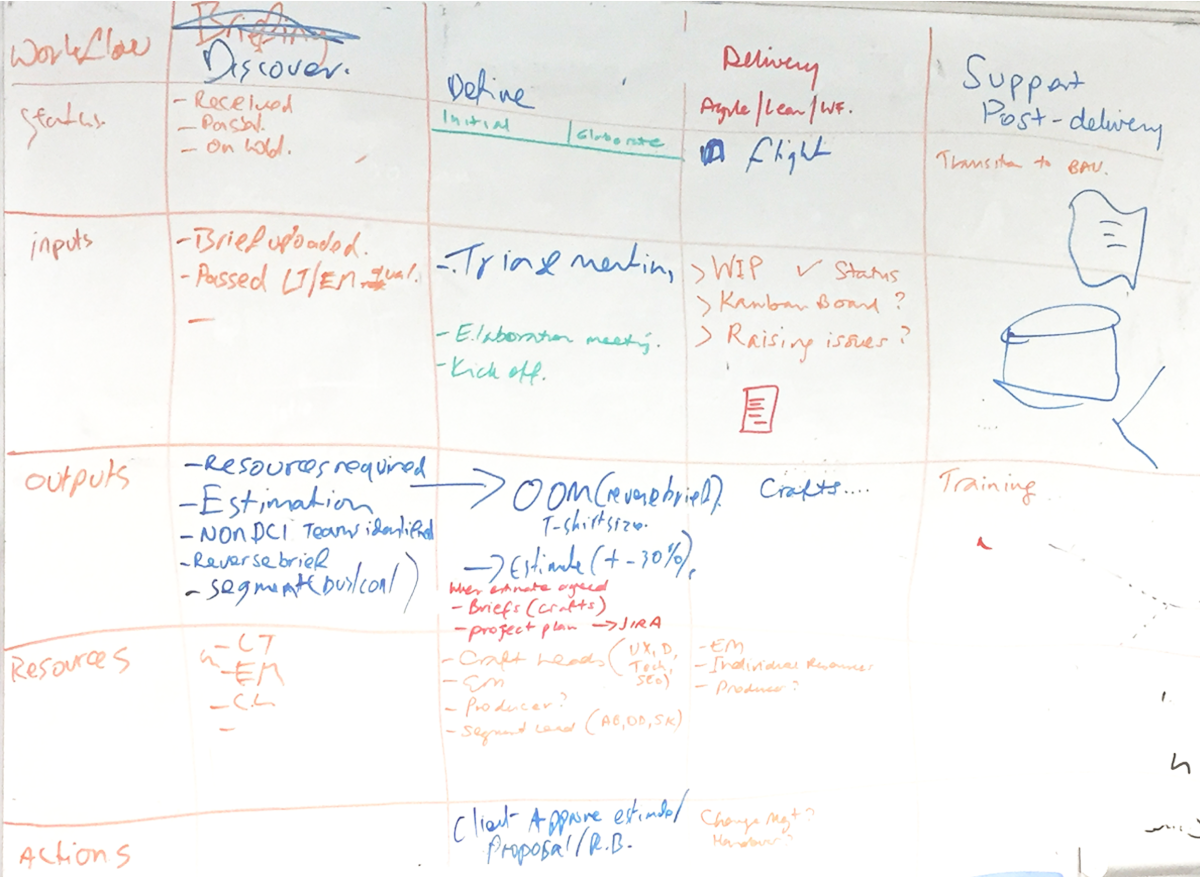 Workflow
Briefing
Discover.
Define
Delivery
Support
Post-delivery
Status.
- Received
- Passed.
- On hold.
Initial | Elaborate
Agile/Lean/WF.
flight
Transition to BAU.
inputs
- Brief uploaded.
- Passed LT/EM qual.
-
- Triage meeting
- Elaboration meeting.
- Kick off.
> WIP ✓ Status
> Kanban Board?
> Raising issues?
Outputs
- Resources required
- Estimation
- NON DCI Teams identified
- Reverse brief
- segment (bus/con/)
→ OOM (reverse brief).
T-shirt size.
→ Estimate (+-30%).
When estimate agreed
- Briefs (crafts)
- project plan → JIRA
Crafts....
Training
Resources
- LT
- EM
- C.L
-
- Craft Leads (UX, D,
Tech,
SEO)
- EM
- Producer?
- Segment Lead (AB, DD, SK)
- EM
- Individual Resources
- Producer?
Actions
Client Approve estimate/
Proposal/R.B.
Change Mgt?
Handover?